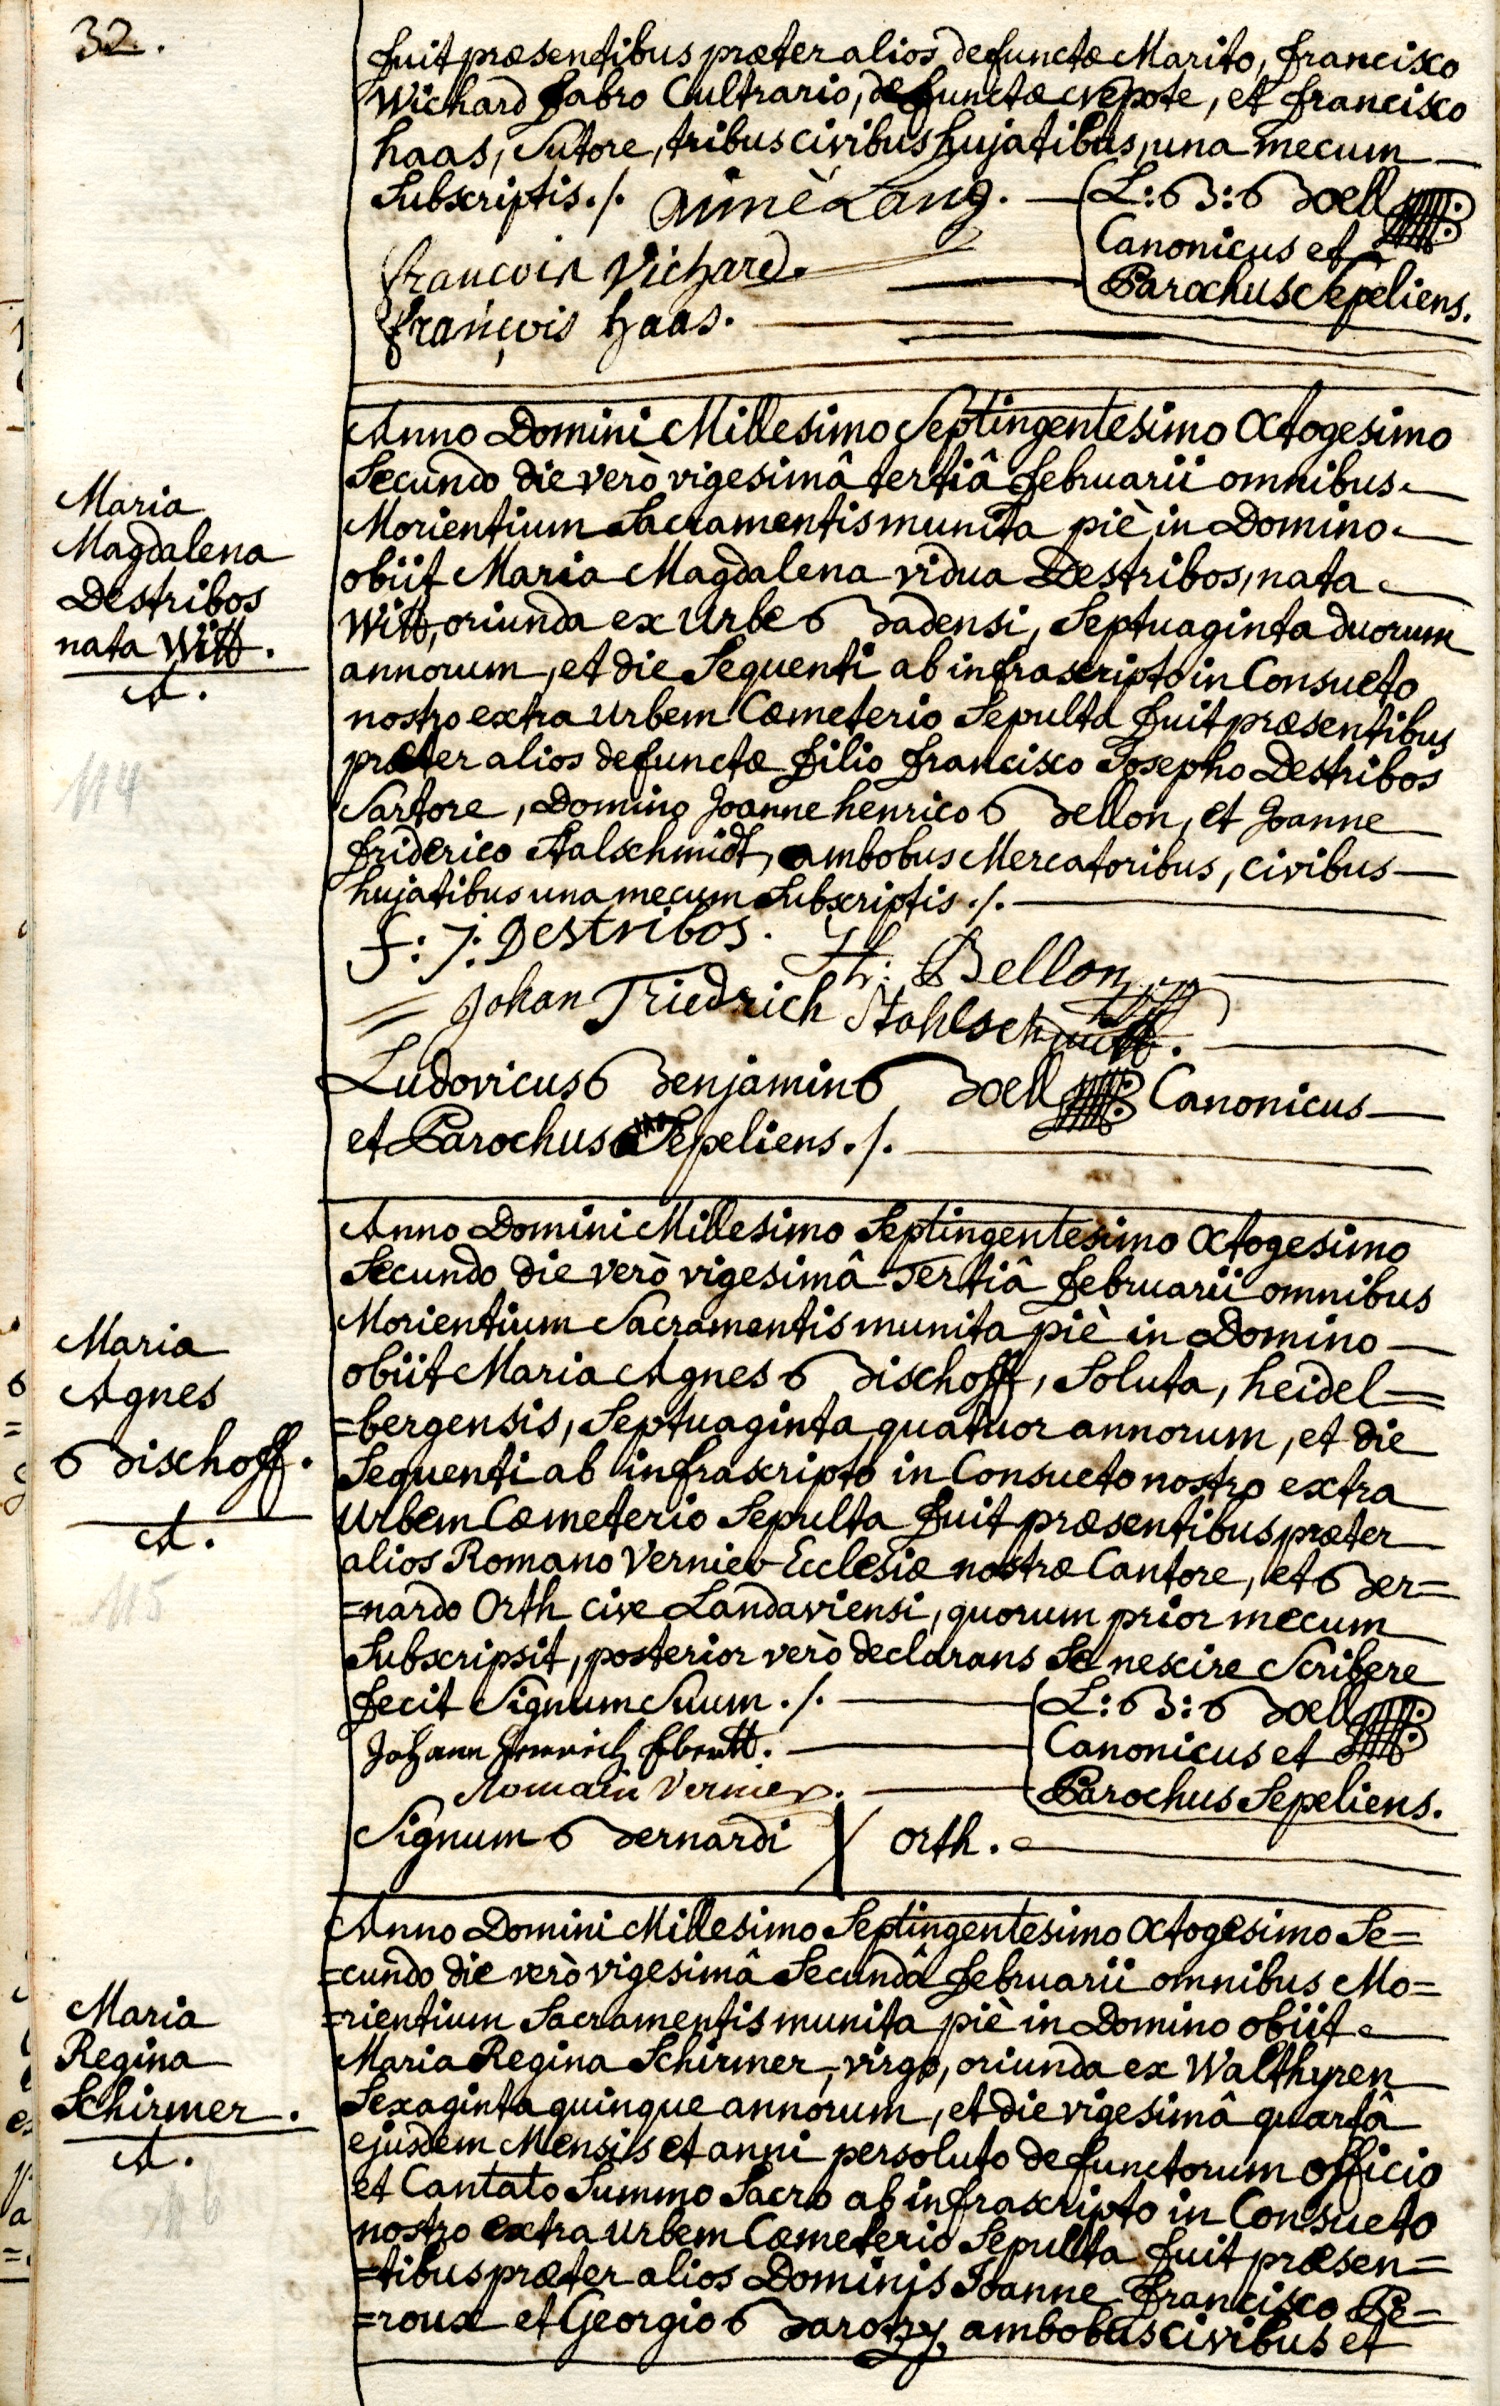 32.
fuit præsentibus præter alios defunctæ Marito, francisco
Wichard fabro Cultrario, defunctæ Nepote, et francisco
haas, Sutore, tribus civibus hujatibus, una mecum
Subscriptis ./. aimè Lang.
L: B: Boell
Canonicus et
Parochus Sepeliens.
francois Vichard.
françois haas.
Maria
Magdalena
Destribos
nata Witt.
A.
114
Anno Domini Millesimo Septingentesimo Octogesimo
Secundo die verò vigesimâ tertiâ februarii omnibus
Morientium Sacramentis munita piè in Domino
obiit Maria Magdalena vidua Destribos, nata
Witt, oriunda ex Urbe Badensi, Septuaginta duorum
annorum, et die Sequenti ab infrascripto in Consueto
nostro extra Urbem Cæmeterio Sepulta fuit præsentibus
præter alios defunctæ filio francisco Josepho Destribos
Sartore, Domino Joanne henrico Bellon, et Joanne
friderico Stalschmidt, ambobus Mercatoribus, civibus
hujatibus una mecum Subscriptis ./.
f: J: Destribos.
H: Bellon
Johan Friedrich Stahlschmidt.
Ludovicus Benjamin Boell Canonicus
et Parochus Sepeliens ./.
Maria
Agnes
Bischoff.
A.
115
Anno Domini Millesimo Septingentesimo Octogesimo
Secundo die verò vigesimâ Tertiâ februarii omnibus
Morientium Sacramentis munita piè in Domino
obiit Maria Agnes Bischoff, Soluta, heidel=
=bergensis, Septuaginta quatuor annorum, et die
Sequenti ab infrascripto in Consueto nostro extra
Urbem Cæmeterio Sepulta fuit præsentibus præter
alios Romano Vernier Ecclesiæ nostræ Cantore, et Ber=
=nardo Orth cive Landaviensi, quorum prior mecum
Subscripsit, posterior verò declarans Se nescire Scribere
fecit Signum Suum ./.
L: B: Boell
Canonicus et
Parochus Sepeliens.
Johann Henrich
Romain Vernier.
Signum Bernardi X Orth.
Maria
Regina
Schirmer.
A.
116
Anno Domini Millesimo Septingentesimo Octogesimo Se=
=cundo die verò vigesimâ Secundâ februarii omnibus Mo=
=rientium Sacramentis munita piè in Domino obiit
Maria Regina Schirmer, virgo, oriunda ex Walthyren
Sexaginta quinque annorum, et die vigesimâ quartâ
ejusdem Mensis et anni persoluto defunctorum officio
et Cantato Summo Sacro ab infrascripto in Consueto
nostro extra Urbem Cæmeterio Sepulta fuit præsen=
=tibus præter alios Dominis Joanne francisco Pe=
=roux et Georgio Barotzy, ambobus civibus et